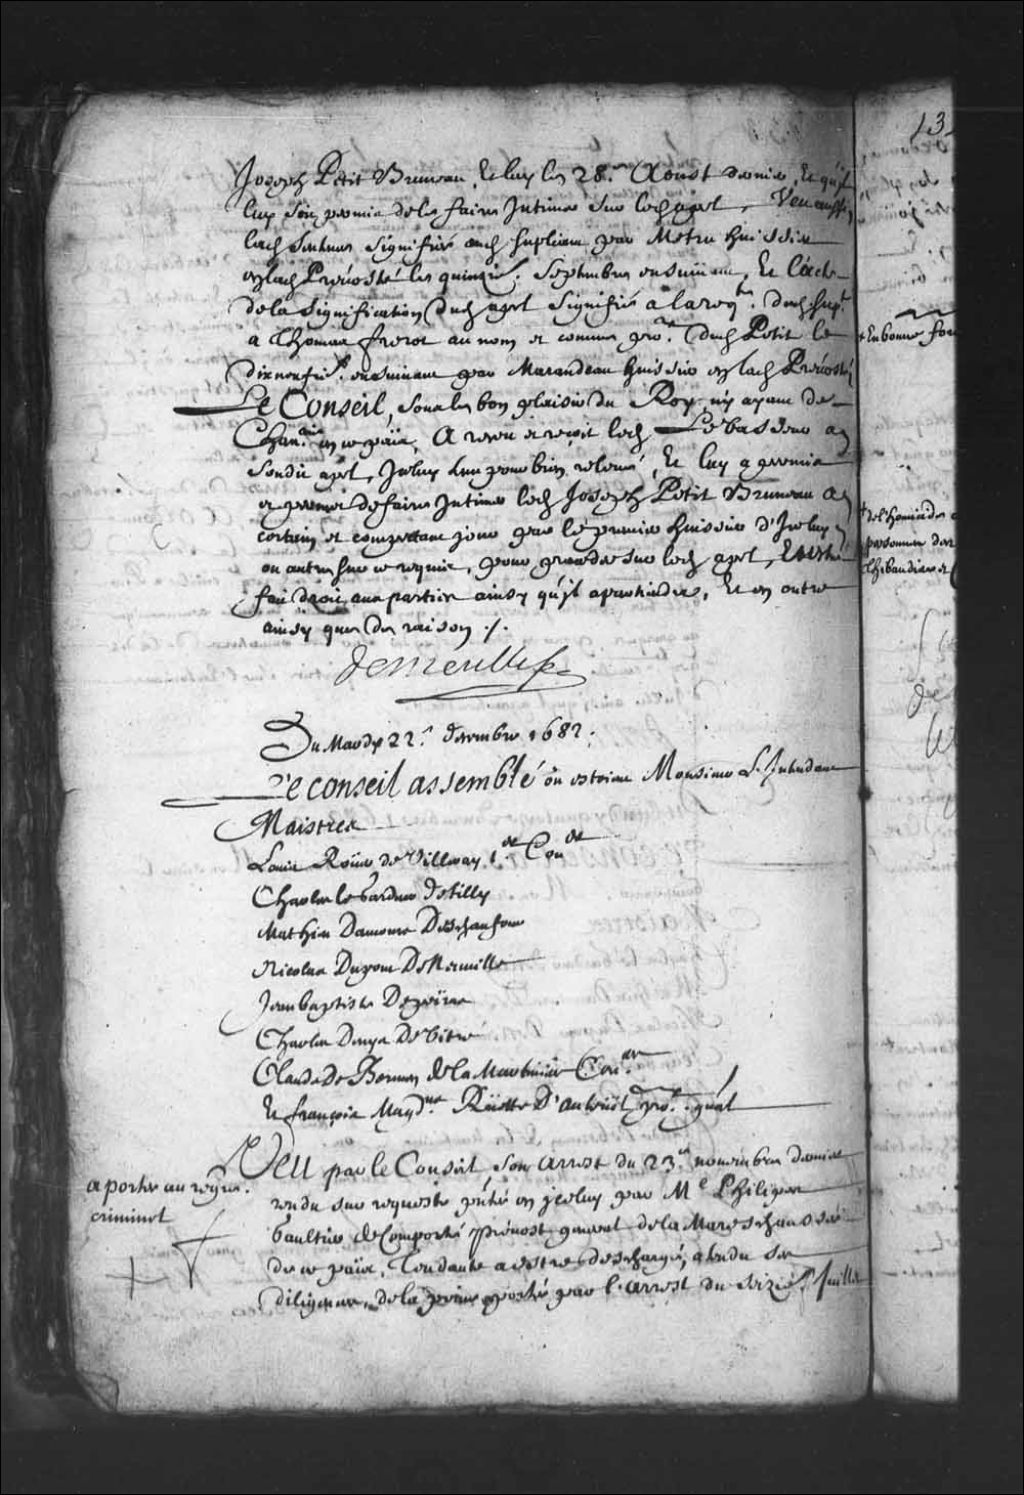 Joseph Petit Bruneau, Iceluy le 28.e Aoust dernier, Et qu'il
luy soit permis de le faire Intimer sur led appel, Veu aussy
lad sentence signifiée aud supliant par Metru huissier
en lad Prevosté le quinzie. Septembre ensuivant, Et l'acte
de la signification dud apel signifié a la req.te dud sup.t
a Thomas frerot au nom et comme pro.r dud Petit le
dixneufie. ensuivant par Marandeau huissier en lad Prevosté
Le Conseil, soubs le bon plaisir du Roy n'y ayant de
Chan.rie en ce païs, A receu et reçoit led Le Vasseur a
sondit apel, Iceluy tenu pour bien relevé, Et luy a permis
et permet de faire Intimer led Joseph Petit Bruneau a
certain et competant jour par le premier huissier d'Iceluy
ou autre sur ce requis, pour proceder sur led apel, Et estre
fait droit aux parties ainsy qu'il apartiendra, Et en outre
ainsy que de raison ./.
Demeulles
Du Mardy 22.e decembre 1682.
Le conseil assemblé où estoient Monsieur L'Intendant
Maistres
Louis Roüer de Villeray 1.er Con.er
Charles le Gardeur de Tilly
Mathieu Damours Deschaufour
Nicolas Dupont De Neuville
Jean baptiste Depeiras
Charles Denys De Vitré
Claude De Bermen de la Martiniere Con.ers
Et françois Magd.ne Rüette D'auteüil pro.r gnal
Veu par le Conseil son arrest du 23.e novembre dernier
a porter au regre.
criminel
rendu sur requeste pñtée en iceluy par M.e Philipes
Gaultier de Comporté Prevost general de la Mareschaussée
de ce païs, Tendante a estre deschargé, atendu ses
diligences, de la peine portée par l'arrest du seizie. Juillet
13
+ En bonne for
+ de l'homicide
personnes des
Thibaudiere et